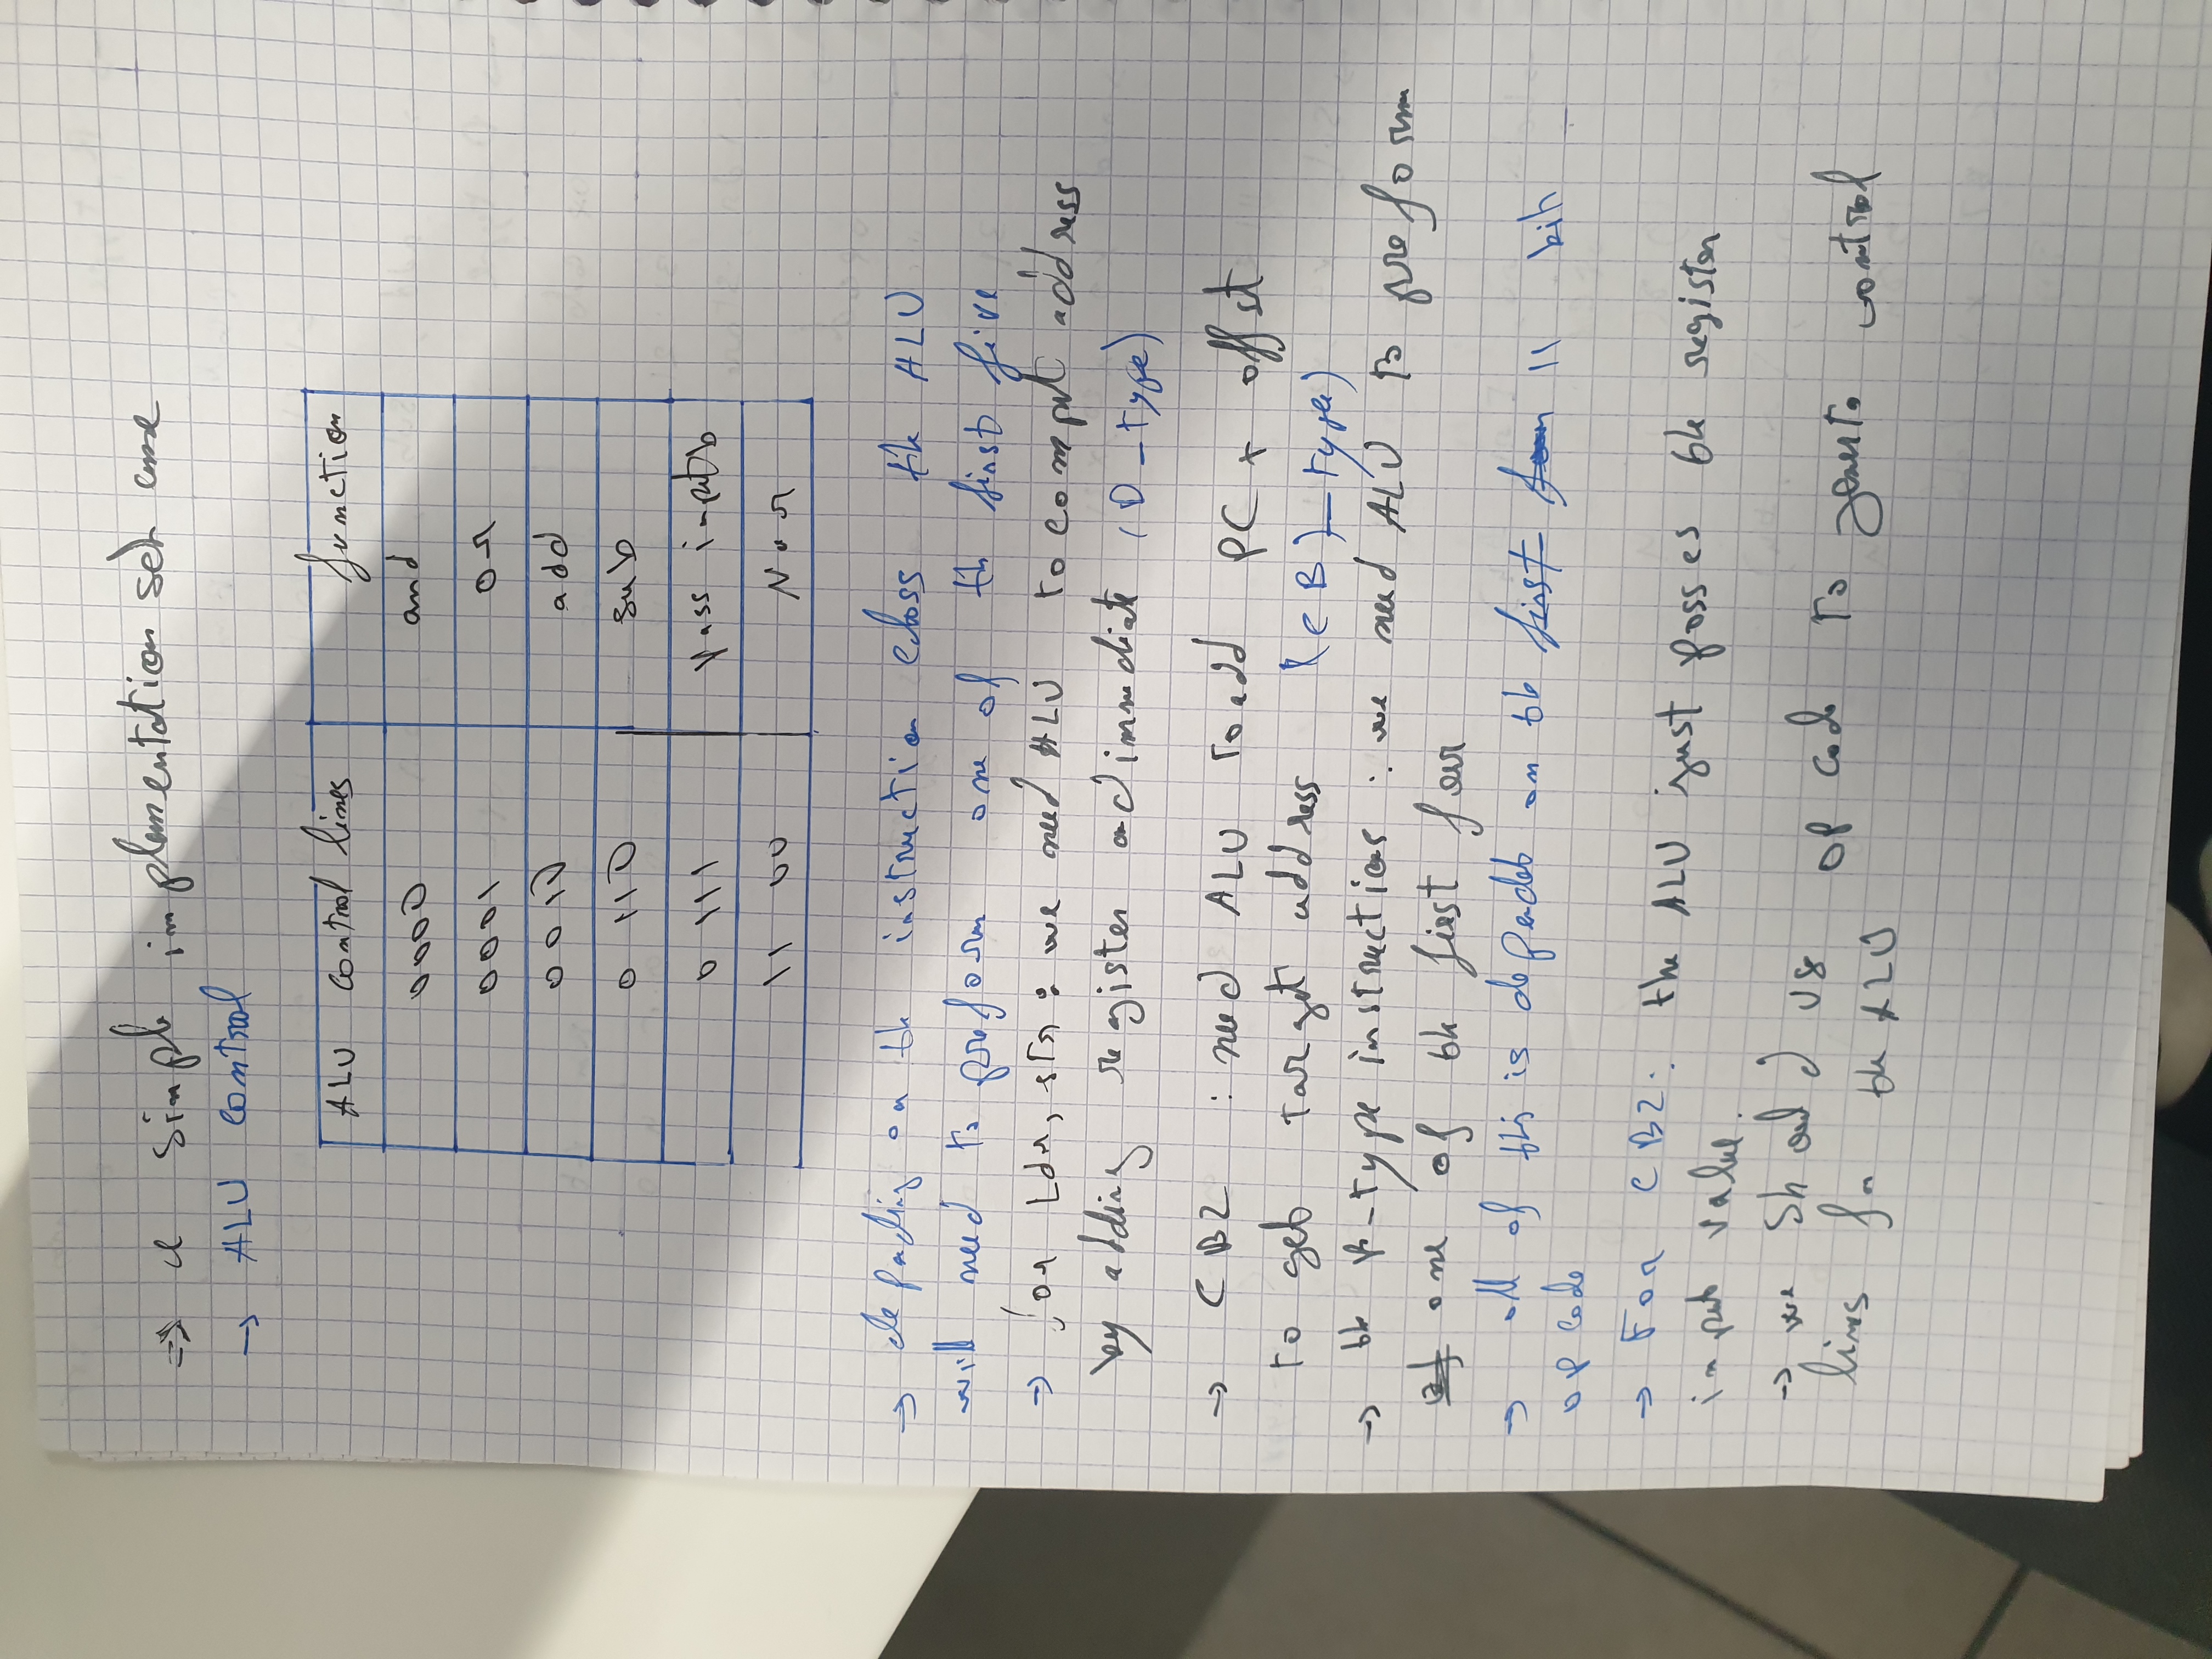 ⇒ a simple implementation scheme
→ ALU control
ALU control lines function
0000 and
0001 or
0010 add
0110 sub
0111 pass input b
1100 Nor
→ depending on the instruction class the ALU
will need to preform one of the first five
→ for Ldr, str: we need ALU to compute address
by adding register and immediate (D_type)
→ CBZ : need ALU to add PC + offset
to get target address (CB)_type)
→ the R-type instructions : we need ALU to preform
one of the first four
→ all of this is dependet on the first four 11 bit
op code
→ For CBZ: the ALU just passes the register
input value.
→ we should use op code to generate control
lines for the ALU